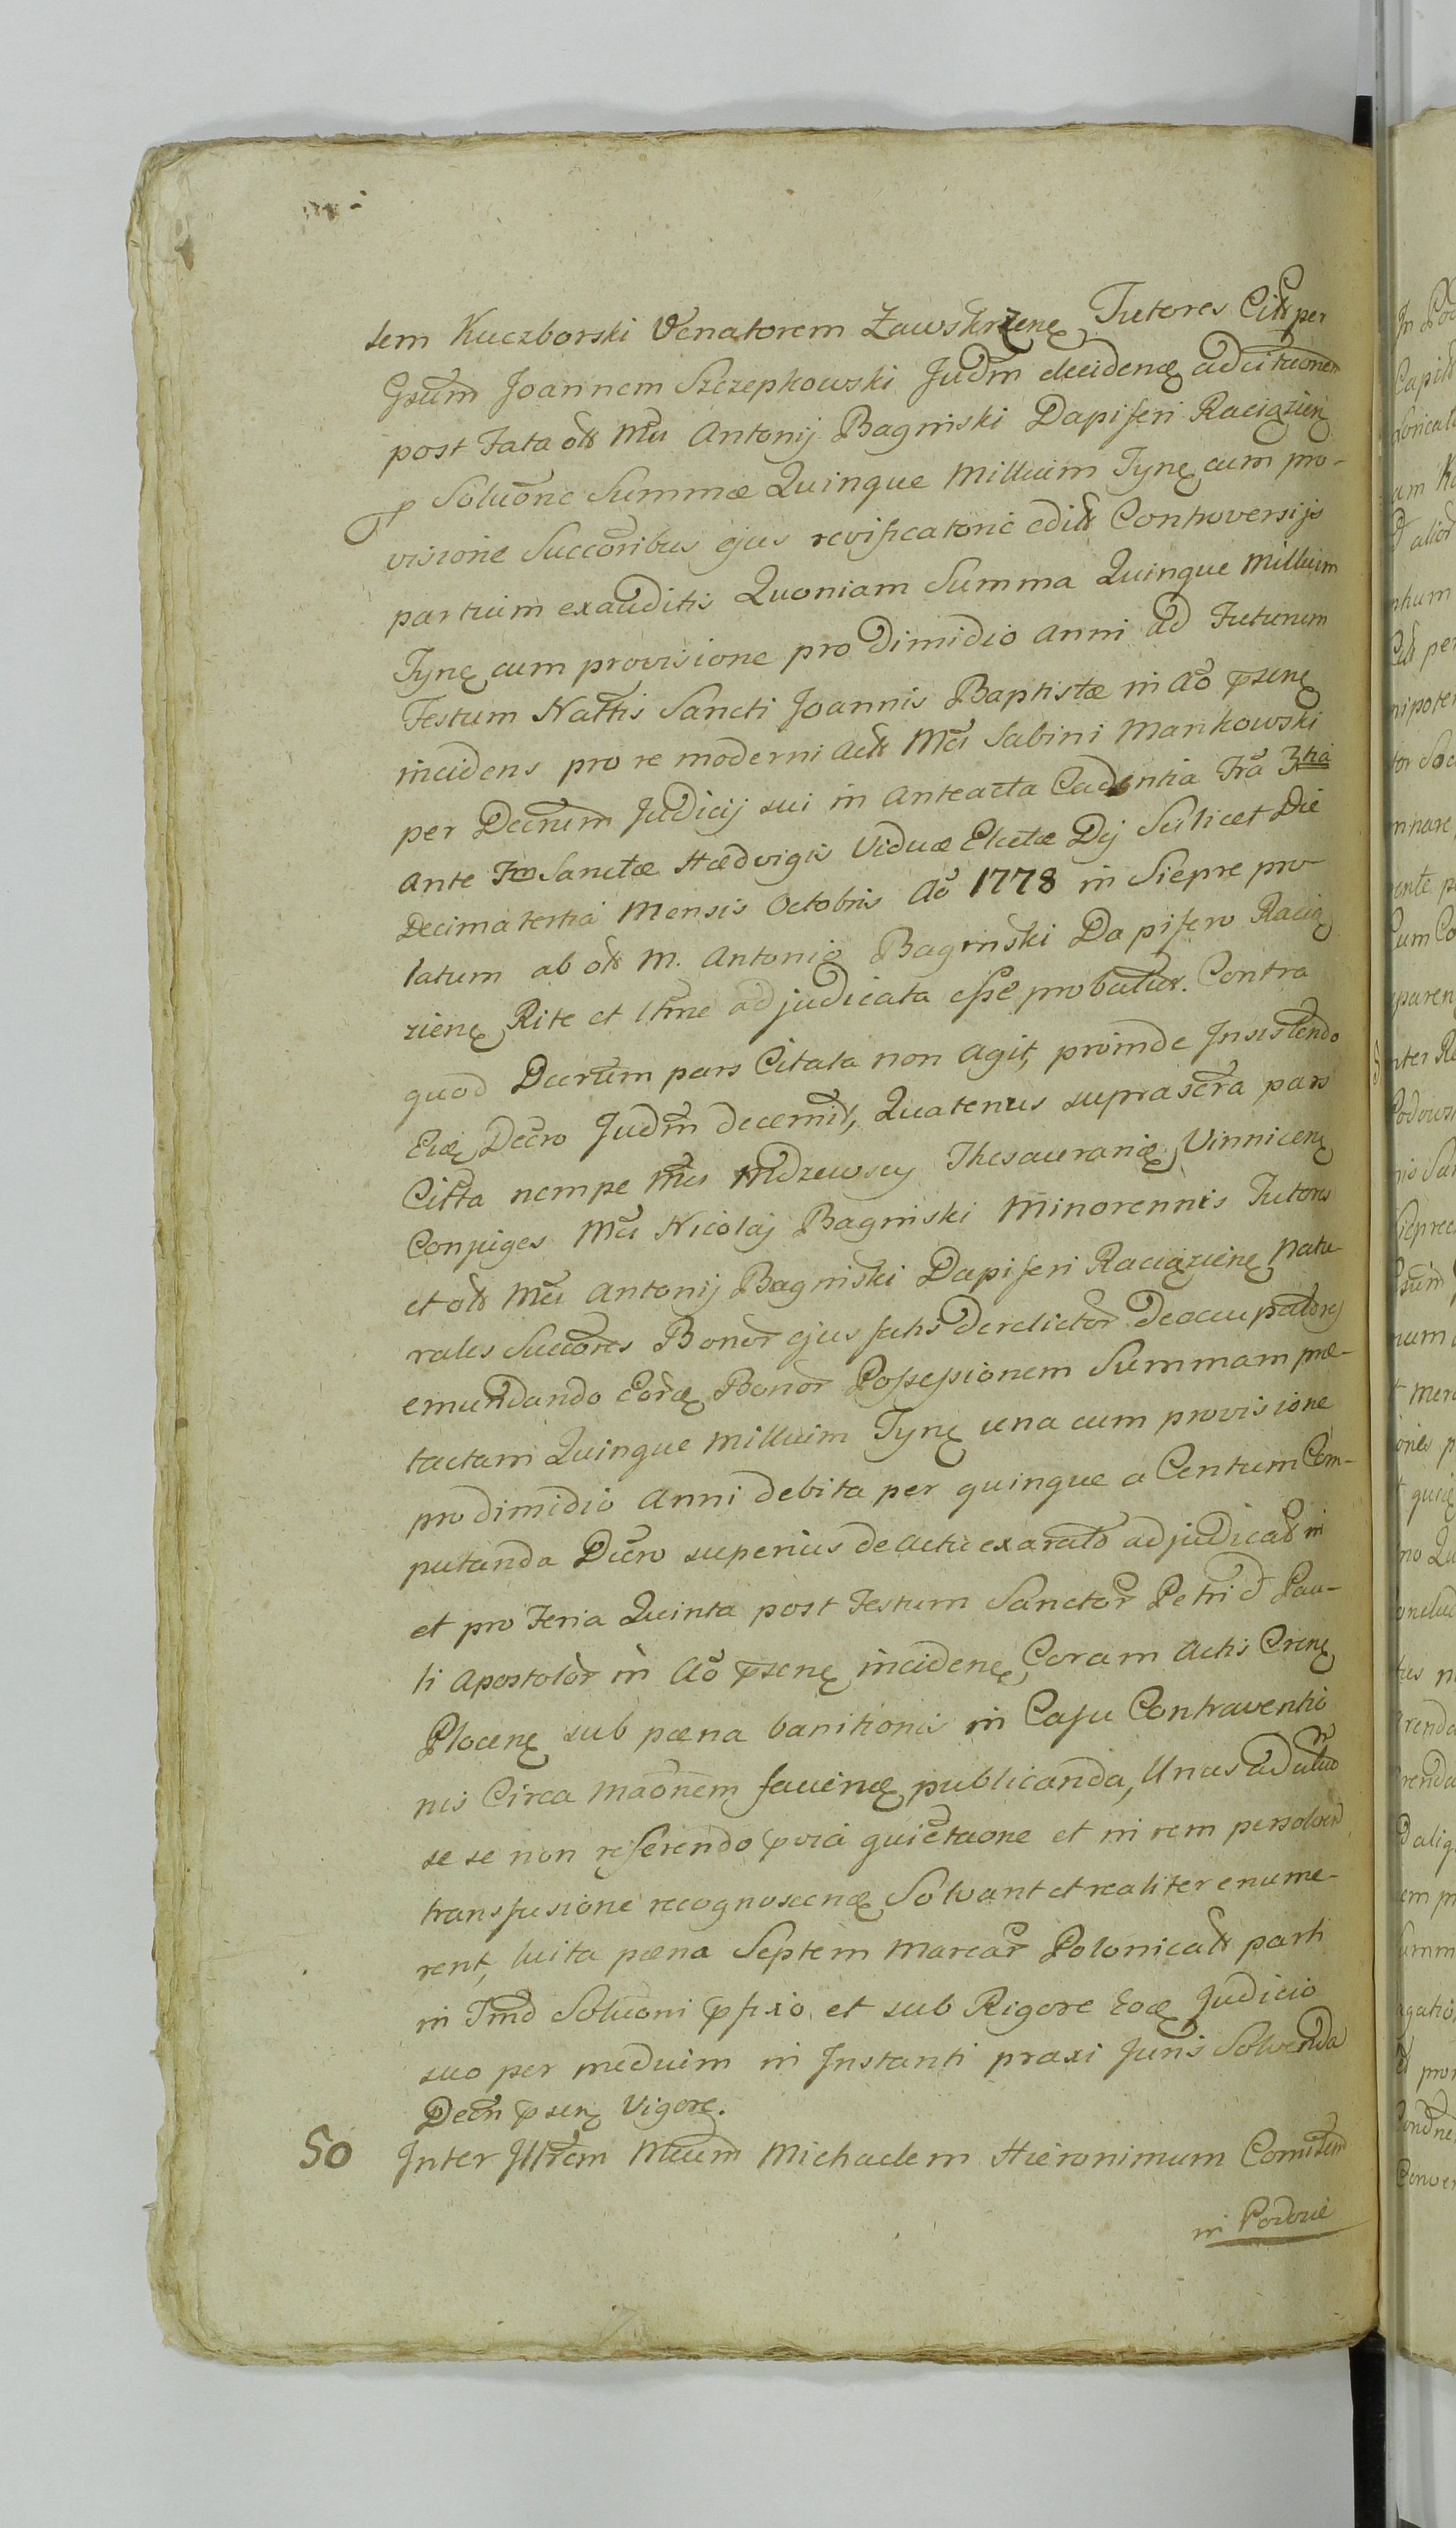 dem Kuczborski Venatorem Zawskrzenę Tutores Citt per
Gsum Joannem Szczepkowski Judm decidenę adcitaonem
post Fata olt Mci Antonij Bagniski Dapiferi Raciązienę
p Soluone Summæ Quinque Millium Tynę cum pro-
visione Succoribus ejus revificatorie edilt Controversijs
partium exauditis Quoniam Summa Quinque Millium
Tynę cum provisione pro Dimidio anni ad Futurum
Festum Nattis Sancti Joannis Baptistæ in Aō psenę
incidens pro re moderni Actt Mci Sabini Mankowski
per Decrum Judicij sui in Anteacta Cadentia Fra 3tia
Ante Fm Sanctæ Hædvigis Viduæ Electæ Dij Scilicet Die
Decima tertia Mensis Octobris Aō 1778 in Siepre pro-
latum ab olt M. Antonio Bagniski Dapifero Racią
zienę Rite et ltme adjudicata esse probatur. Contra
quod Decrum pars Citata non agit, proinde Insistendo
Eidę Decro Judm decernit, Quatenus suprascra pars
Citta nempe Mci Mdzewscy Thesaurarię Vinnicenę
Conjuges Mci Nicolaj Bagniski Minorennis Tutores
et olt Mci Antonij Bagniski Dapiferi Raciązienę Natu-
rales Succores Bonor ejus fatis Derelictor Deoccupatores
emundando eordę Bonor Possessionem Summam præ-
tactam Quinque Millium Tynę una cum provisione
pro dimidio Anni debita per quinque a Centum Com-
putanda Decro superius de actu exarato adjudicatt in
et pro Feria Quinta post Festum Sanctor Petri et Pau-
li Apostolor in Aō psenę incidenę Coram Actis Crenę
Plocenę sub pæna banitionis in Casu Contraventio
nis Circa Maonem faciendę publicanda, Unus ad altrum
se se non referendo pvia quietaone et in rem persolven
transfusione recognoscendę Solvant et realiter enume-
rent, luita pæna Septem Marcar Polonicalt parti
in Tmo Soluoni pfixo et sub Rigore eodę Judicio
suo per medium in Instanti praxi Juris Solvenda
Decri psenę Vigore.
50 Inter Illrem Mcum Michaelem Hieronimum Comitem
in Podowie